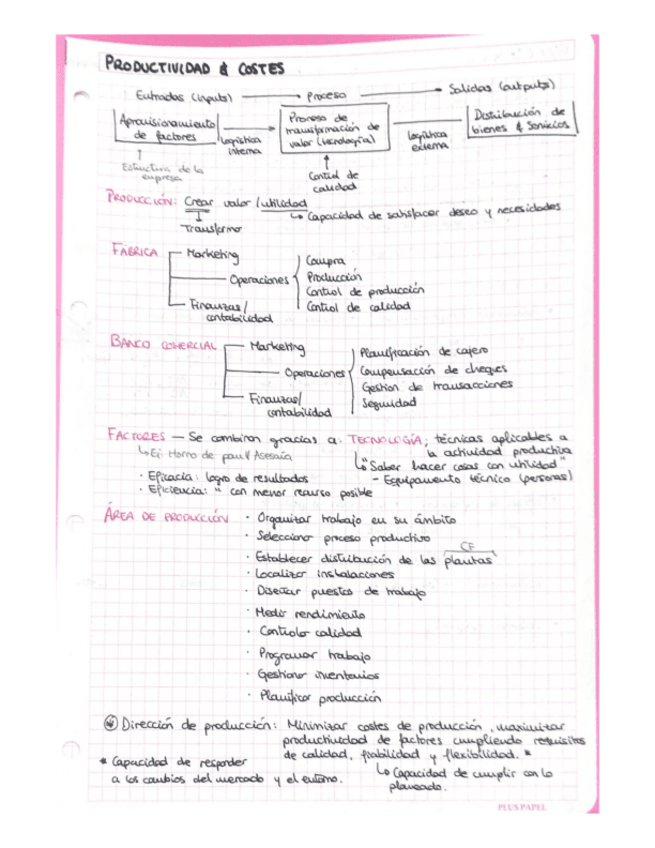 PRODUCTIVIDAD & COSTES
Entradas (inputs) Proceso Salidas (outputs)
Aprovisionamiento de factores
Logística interna
Proceso de transformación de valor (tecnología)
Logística externa
Distribución de bienes & Servicios
Estructura de la empresa
Control de calidad
PRODUCCIÓN: Crear valor / utilidad
Capacidad de satisfacer deseo y necesidades
Transformar
FÁBRICA
Marketing
Operaciones
Finanzas/ contabilidad
Compra
Producción
Control de producción
Control de calidad
BANCO COMERCIAL
Marketing
Operaciones
Finanzas/ contabilidad
Planificación de cajero
Compensación de cheques
Gestión de transacciones
Seguridad
FACTORES — Se combinan gracias a: TECNOLOGÍA; técnicas aplicables a la actividad productiva
Ej: Horno de pan / Asesoría
"Saber hacer cosas con utilidad"
- Equipamento técnico (personas)
· Eficacia: logro de resultados
· Eficiencia: " con menor recurso posible
ÁREA DE PRODUCCIÓN
· Organizar trabajo en su ámbito
· Seleccionar proceso productivo
CF
· Establecer distribución de las plantas
· Localizar instalaciones
· Diseñar puestos de trabajo
· Medir rendimiento
· Controlar calidad
· Programar trabajo
· Gestionar inventarios
· Planificar producción
Dirección de producción: Minimizar costes de producción, maximizar
productividad de factores cumpliendo requisitos
de calidad, fiabilidad y flexibilidad. *
* Capacidad de responder
a los cambios del mercado y el entorno.
Capacidad de cumplir con lo
planeado.
PLUS PAPEL